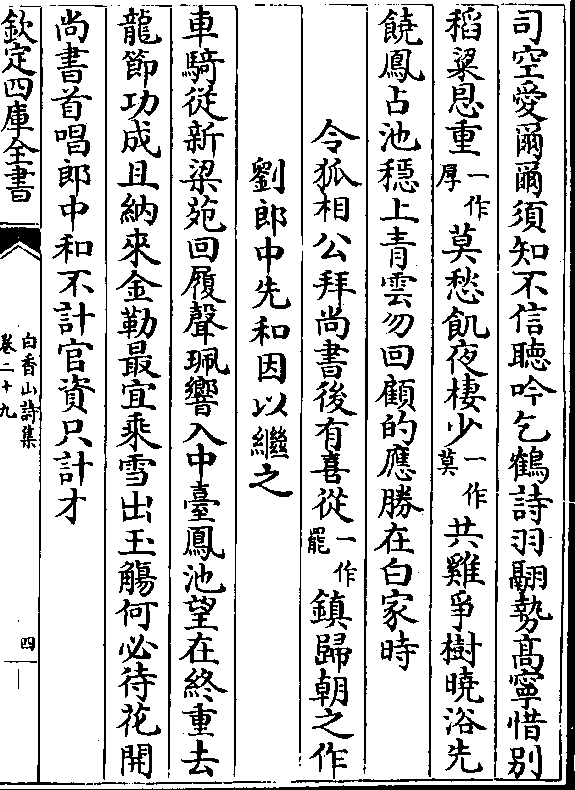 司空愛爾爾須知不信聽吟乞鶴詩羽翮勢髙寧惜别
稻粱恩重一作厚莫愁飢夜棲少一作莫共雞爭樹曉浴先
饒鳳占池穩上青雲勿回顧的應勝在白家時
令狐相公拜尚書後有喜從一作罷鎮歸朝之作
劉郎中先和因以繼之
車騎從新梁苑回履聲珮響入中臺鳳池望在終重去
龍節功成且納來金勒最宜乘雪出玉觴何必待花開
尚書首唱郎中和不計官資只計才
欽定四庫全書
白香山詩集
卷二十九
四